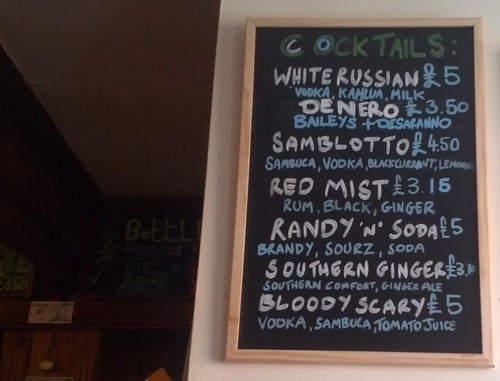 COCKTAILS:
WHITE RUSSIAN £5
VODKA, KAHLUA, MILK
DENERO £3.50
BAILEYS + DISARANNO
SAMBLOTTO £4.50
SAMBUCA, VODKA, BLACKCURRANT, LEMONADE
RED MIST £3.15
RUM, BLACK, GINGER
RANDY 'N' SODA £5
BRANDY, SOURZ, SODA
SOUTHERN GINGER £3.10
SOUTHERN COMFORT, GINGER ALE
BLOODY SCARY £5
VODKA, SAMBUCA, TOMATO JUICE
BOTTL
ICE
STELLA
£3.50